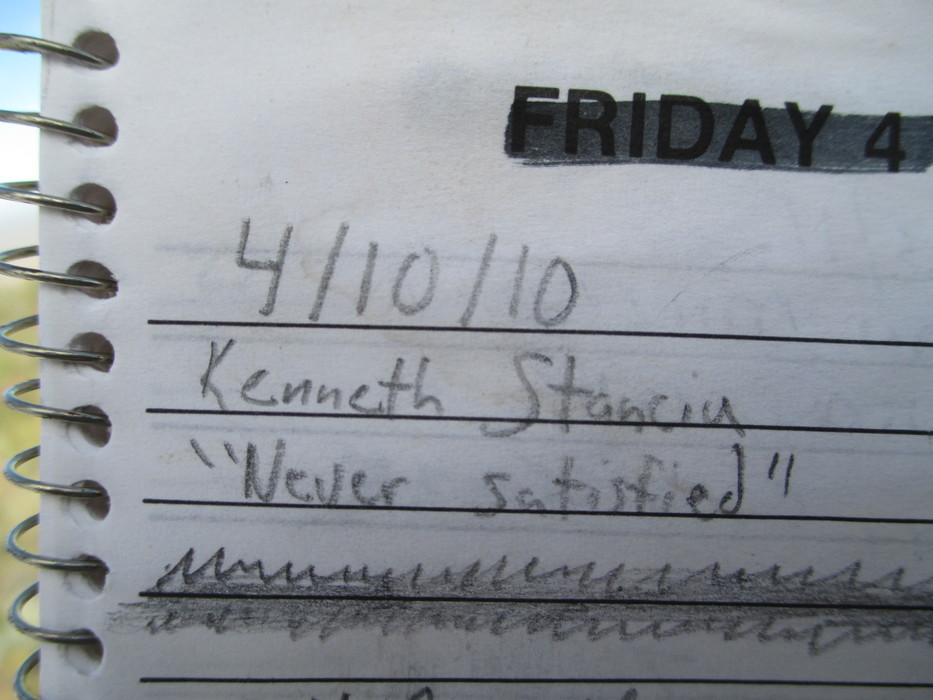 FRIDAY 4
4/10/10
Kenneth Stanciu
"Never satisfied"